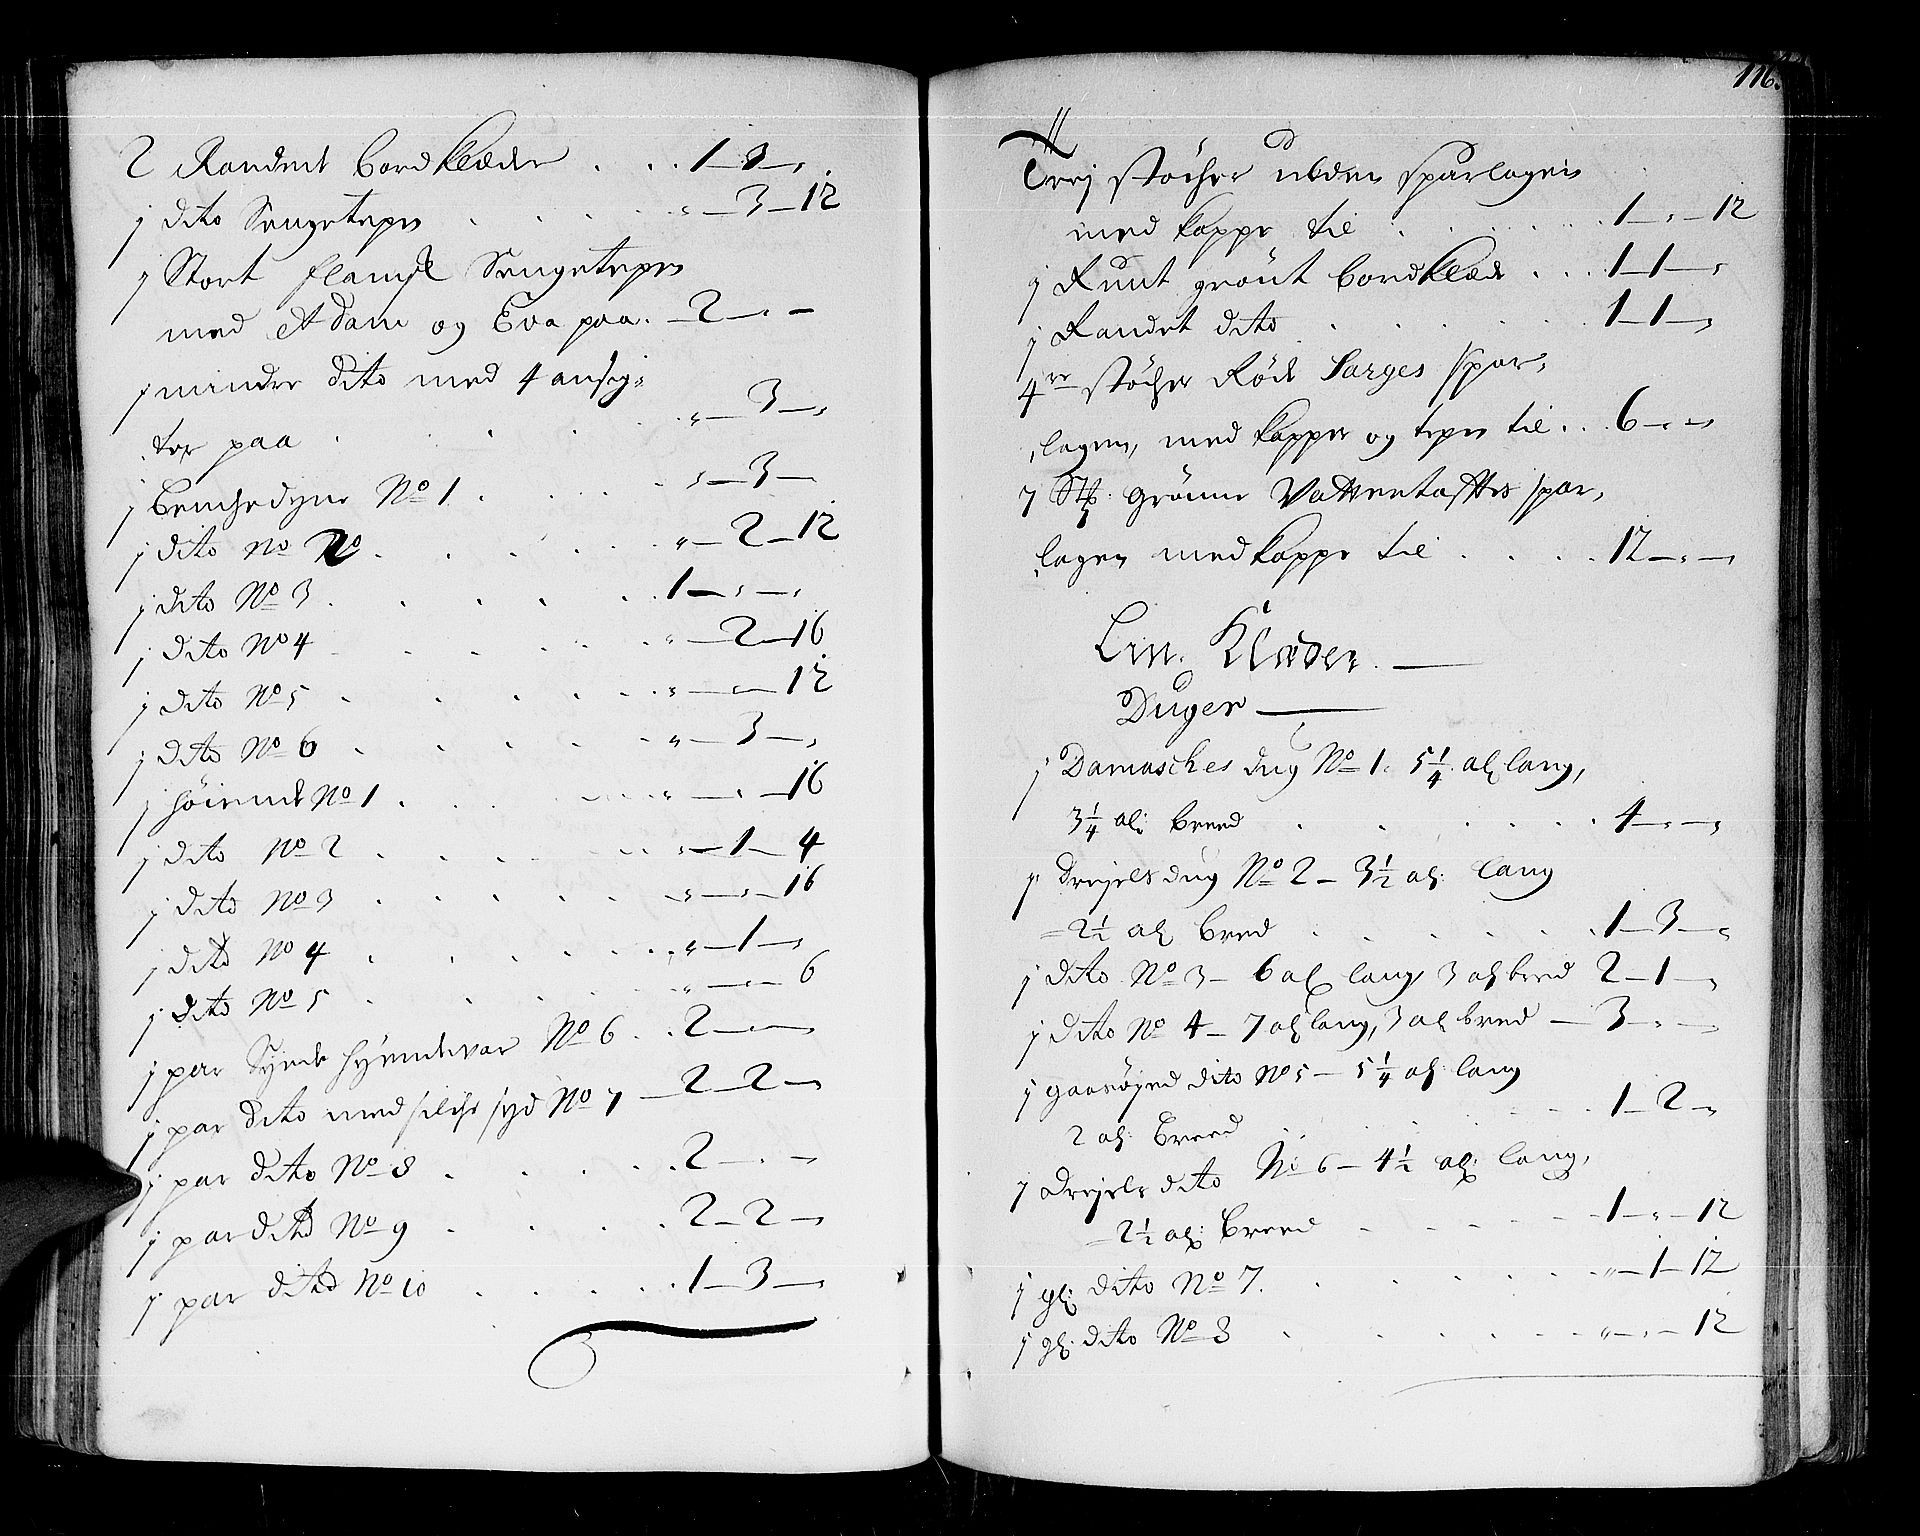 2 Randent bordklæder . . . 1–3–,
j dito Sengetepen . . . „–3–12
j Stort flamsk Sengetepen
med Adam og Eva paa . –2–„–
j mindre dito med 4 ansig=
ter paa . . . „–3–„
j benchedyne No 1 . . . „–3–
j dito No 2 . . . „–2–12
j dito No 3 . . . 1–„–„
j dito No 4 . . . „–2–16
j dito No 5 . . . „–„–12
j dito No 6 . . . „–3–„
j høiende No 1 . . . „–„–16
j dito No 2 . . . „–1–4
j dito No 3 . . . „–„–16
j dito No 4 . . . „–1–„
j dito No 5 . . . „–„–6
j par Syede hyendevar No 6 . . 2–„–
j par dito med silche syd No 7 –2–2–„
j par dito No 8 . . . 2–„–
j par dito No 9 . . . 2–2–„
j par dito No 10 . . . 1–3–„
116.
Trej støcher ulden sparlagen
med kappe til . . . 1–„–12
j Runt grønt bordklæde . . . 1–1–„
j Randet dito . . . 1–1–„
4re støcher Røde Sarges spar,
lagen, med kapper og tepen til . . 6–„–
7 St: grønne Vattentafttes spar,
lagen med kappe til . . . 12–„–
Lin. Klæder.
Duger
j Damasches dug No 1. 5 1/4 al: lang,
3 1/4 al: breed . . . 4–„–„
j Drejels dug No 2 – 3 1/2 al: lang
– 2 1/2 al: bred . . . 1–3–„
j dito No 3 – 6 al: lang 3 al: bred 2–1–„
j dito No 4 – 7 al: lang, 3 al: bred – 3–„–
j gaasøjed dito No 5 – 5 1/4 al: lang
2 al: breed . . . 1–2–„
j drejels dito No 6 – 4 1/2 al: lang,
– 2 1/2 al: breed . . . 1–„–12
j gl: dito No 7. . . . „–1–12
j gl: dito No 8 . . . „–„–12